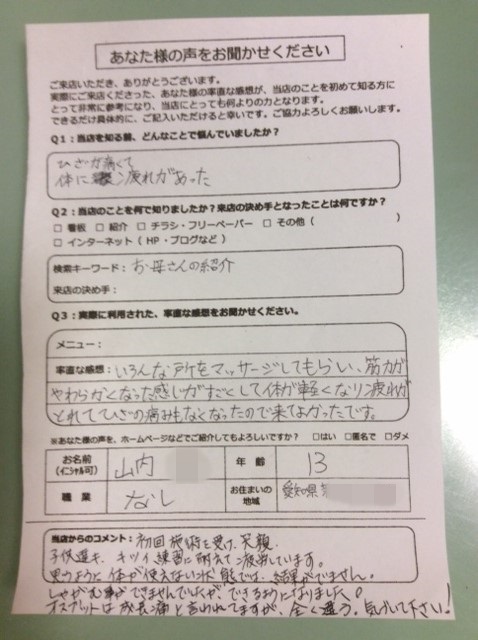 あなた様の声をお聞かせください
ご来店いただき、ありがとうございます。
実際にご来店くださった、あなた様の率直な感想が、当店のことを初めて知る方に
とって非常に参考になり、当店にとっても何よりの力となります。
できるだけ具体的に、ご記入いただけると幸いです。ご協力よろしくお願いします。
Q1：当店を知る前、どんなことで悩んでいましたか？
ひざが痛くて
体に疲れがあった
Q2：当店のことを何で知りましたか？来店の決め手となったことは何ですか？
□ 看板 □ 紹介 □ チラシ・フリーペーパー □ その他（ ）
□ インターネット（HP・ブログなど）
検索キーワード：お母さんの紹介
来店の決め手：
Q3：実際に利用された、率直な感想をお聞かせください。
メニュー：
率直な感想：いろんな所をマッサージしてもらい、筋力が
やわらかくなった感じがすごくして体が軽くなり疲れが
とれててひざの痛みもなくなったので来てよかったです。
※あなた様の声を、ホームページなどでご紹介してもよろしいですか？ □はい □匿名で □ダメ
お名前（イニシャル可） 山内 年齢 13
職業 なし お住まいの地域 愛知県
当店からのコメント：初回施術を受け、笑顔
子供達も、キツイ練習に耐えて疲労しています。
思うように体が使えない状態では、結果がでません。
しゃがむ事ができませんでしたが、できるようになりましたね！
オスグットは成長痛と言われてますが、全く違う。気付いて下さい！